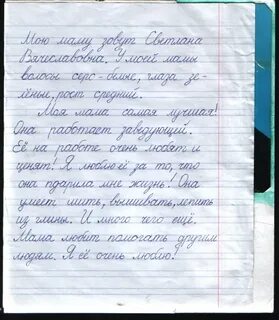 Мою маму зовут Светлана
Вячеславовна. У моей мамы
волосы серо-белые, глаза зе-
лёные, рост средний.
Моя мама самая лучшая!
Она работает заведующей.
Её на работе очень любят и
ценят! Я люблю её за то, что
она пдарила мне жизнь! Она
умеет шить, вышивать, лепить
из глины. И много чего ещё.
Мама любит помогать другим
людям. Я её очень люблю!